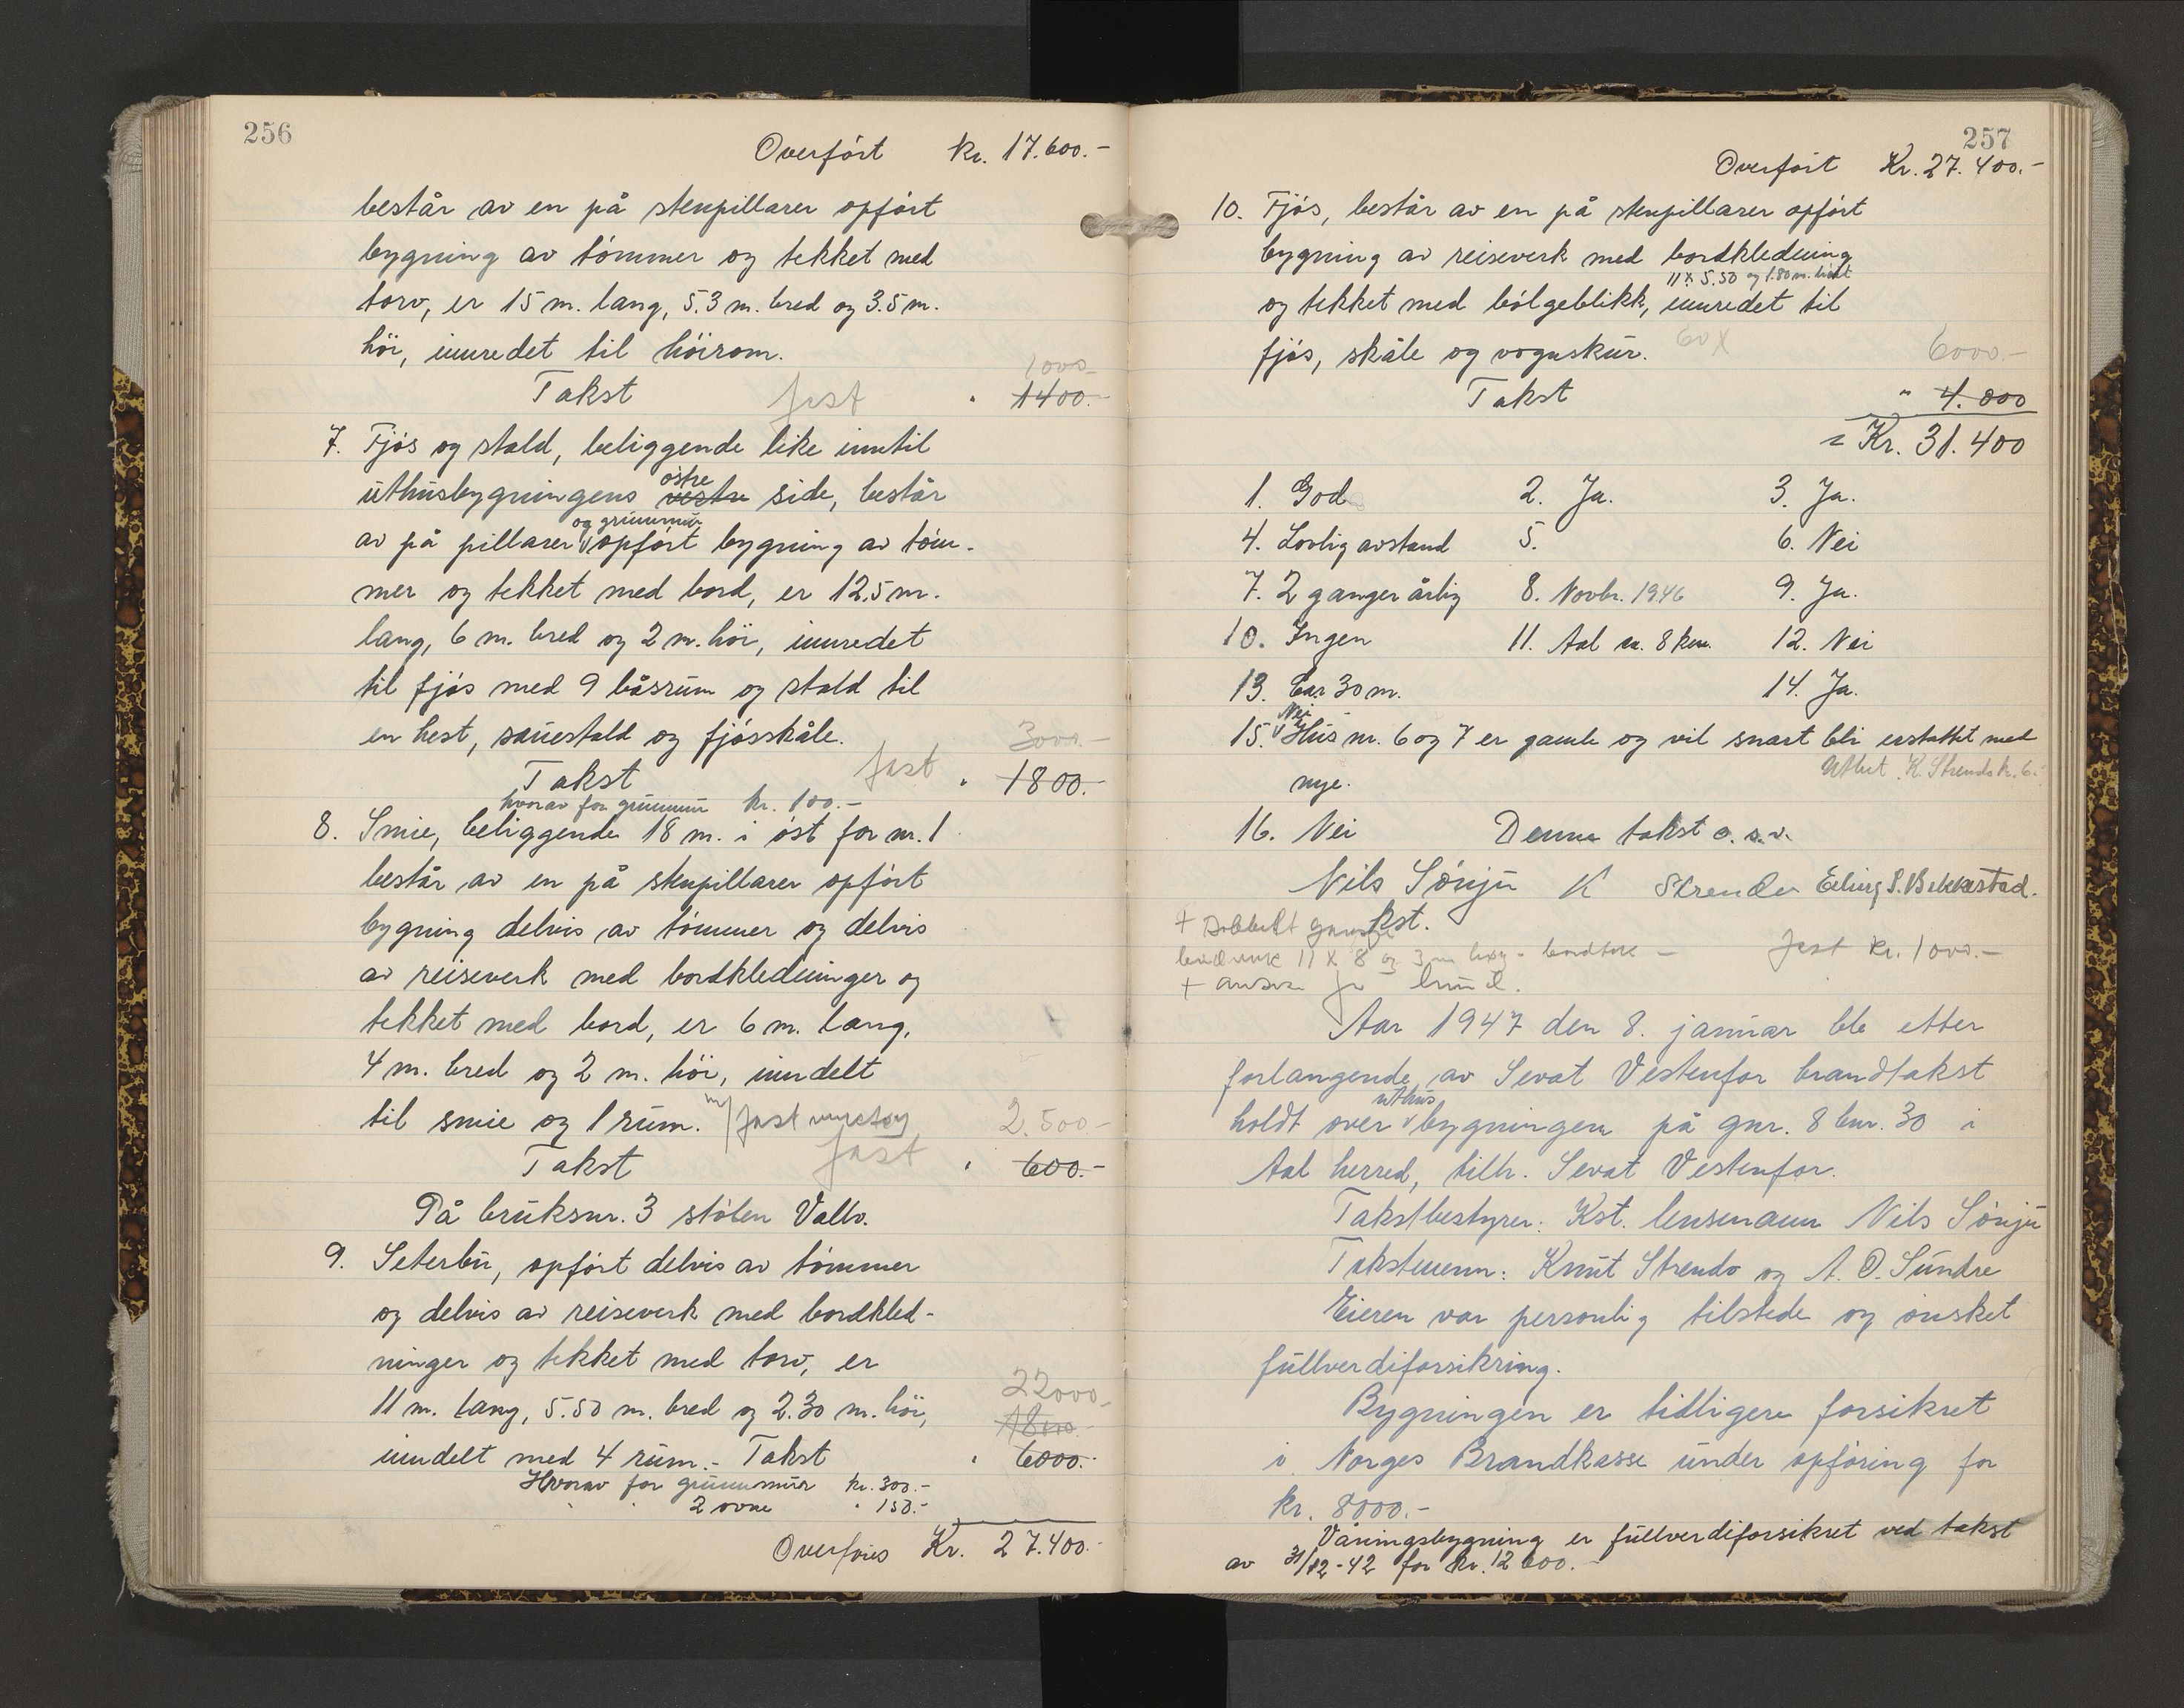 256
Overført kr. 17.600.-
består av en på stenpillarer opført
bygning av tømmer og tekket med
torv, er 15 m. lang, 5.3 m. bred og 3.5 m.
høi, innredet til høirom.
1000-
Takst fast " 1400.-
7. Fjøs og stald, beliggende like inntil
østre
uthusbygningens vestre side, består
og grunnmur
av på pillarer opført bygning av tøm-
mer og tekket med bord, er 12.5 m.
lang, 6 m. bred og 2 m. høi, innredet
til fjøs med 9 båsrum og stald til
en hest, sauestald og fjøsskåle. 3000.-
Takst fast " 1800.-
hvorav for grunnmur kr. 100.-
8. Smie, beliggende 18 m. i øst for nr. 1
består av en på stenpillarer opført
bygning delvis av tømmer og delvis
av reiseverk med bordkledninger og
tekket med bord, er 6 m. lang,
4 m. bred og 2 m. høi, inndelt
til smie og 1 rum. m/ fast 2.500.-
Takst fast " 600.-
På bruksnr. 3 stølen Vallo.
9. Seterbu, opført delvis av tømmer
og delvis av reiseverk med bordkled-
ninger og tekket med torv, er
22000.-
11 m. lang, 5.50 m. bred og 2.30 m. høi, 18000.-
inndelt med 4 rum.- Takst " 6000.-
Hvorav for grunnmur kr. 300.-
" " 2 ovne " 150.-
Overføres Kr. 27.400.-
257
Overført Kr. 27.400.-
10. Fjøs, består av en på stenpillarer opført
bygning av reiseverk med bordkledning
11 x 5.50 og 1.80 m. høit
og tekket med bølgeblikk, innredet til
fjøs, skåle og vognskur. 60 x 6000.-
Takst " 4.000
= Kr. 31.400
1. God 2. Ja. 3. Ja.
4. Lovlig avstand 5. 6. Nei
7. 2 ganger årlig 8. Novbr. 1946 9. Ja.
10. Ingen 11. Aal ca. 8 km. 12. Nei
13. Car 30 m. 14. Ja.
Nei
15. Hus nr. 6 og 7 er gamle og vil snart bli erstattet med
nye. Utbet. K. Strendo kr. 6.-
16. Nei Denne takst o.s.v.
Nils Sønju K Strendo Erling S. Bekkestad.
kst.
+ Dobbelt
11 x 8 og 3 m høy - bordtak - fast kr. 1000.-
+
Aar 1947 den 8. januar ble etter
forlangende av Sevat Vestenfor brandtakst
uthus
holdt over bygningen på gnr. 8 bnr. 30 i
Aal herred, tilh. Sevat Vestenfor.
Takstbestyrer: Kst. lensmann Nils Sønju
Takstmenn: Knut Strendo og A. O. Sundre
Eieren var personlig tilstede og ønsket
fullverdiforsikring.
Bygningen er tidligere forsikret
i Norges Brandkasse under opføring for
kr. 8000.-
Våningsbygning er fullverdiforsikret ved takst
av 31/12-42 for kr. 12 600.-